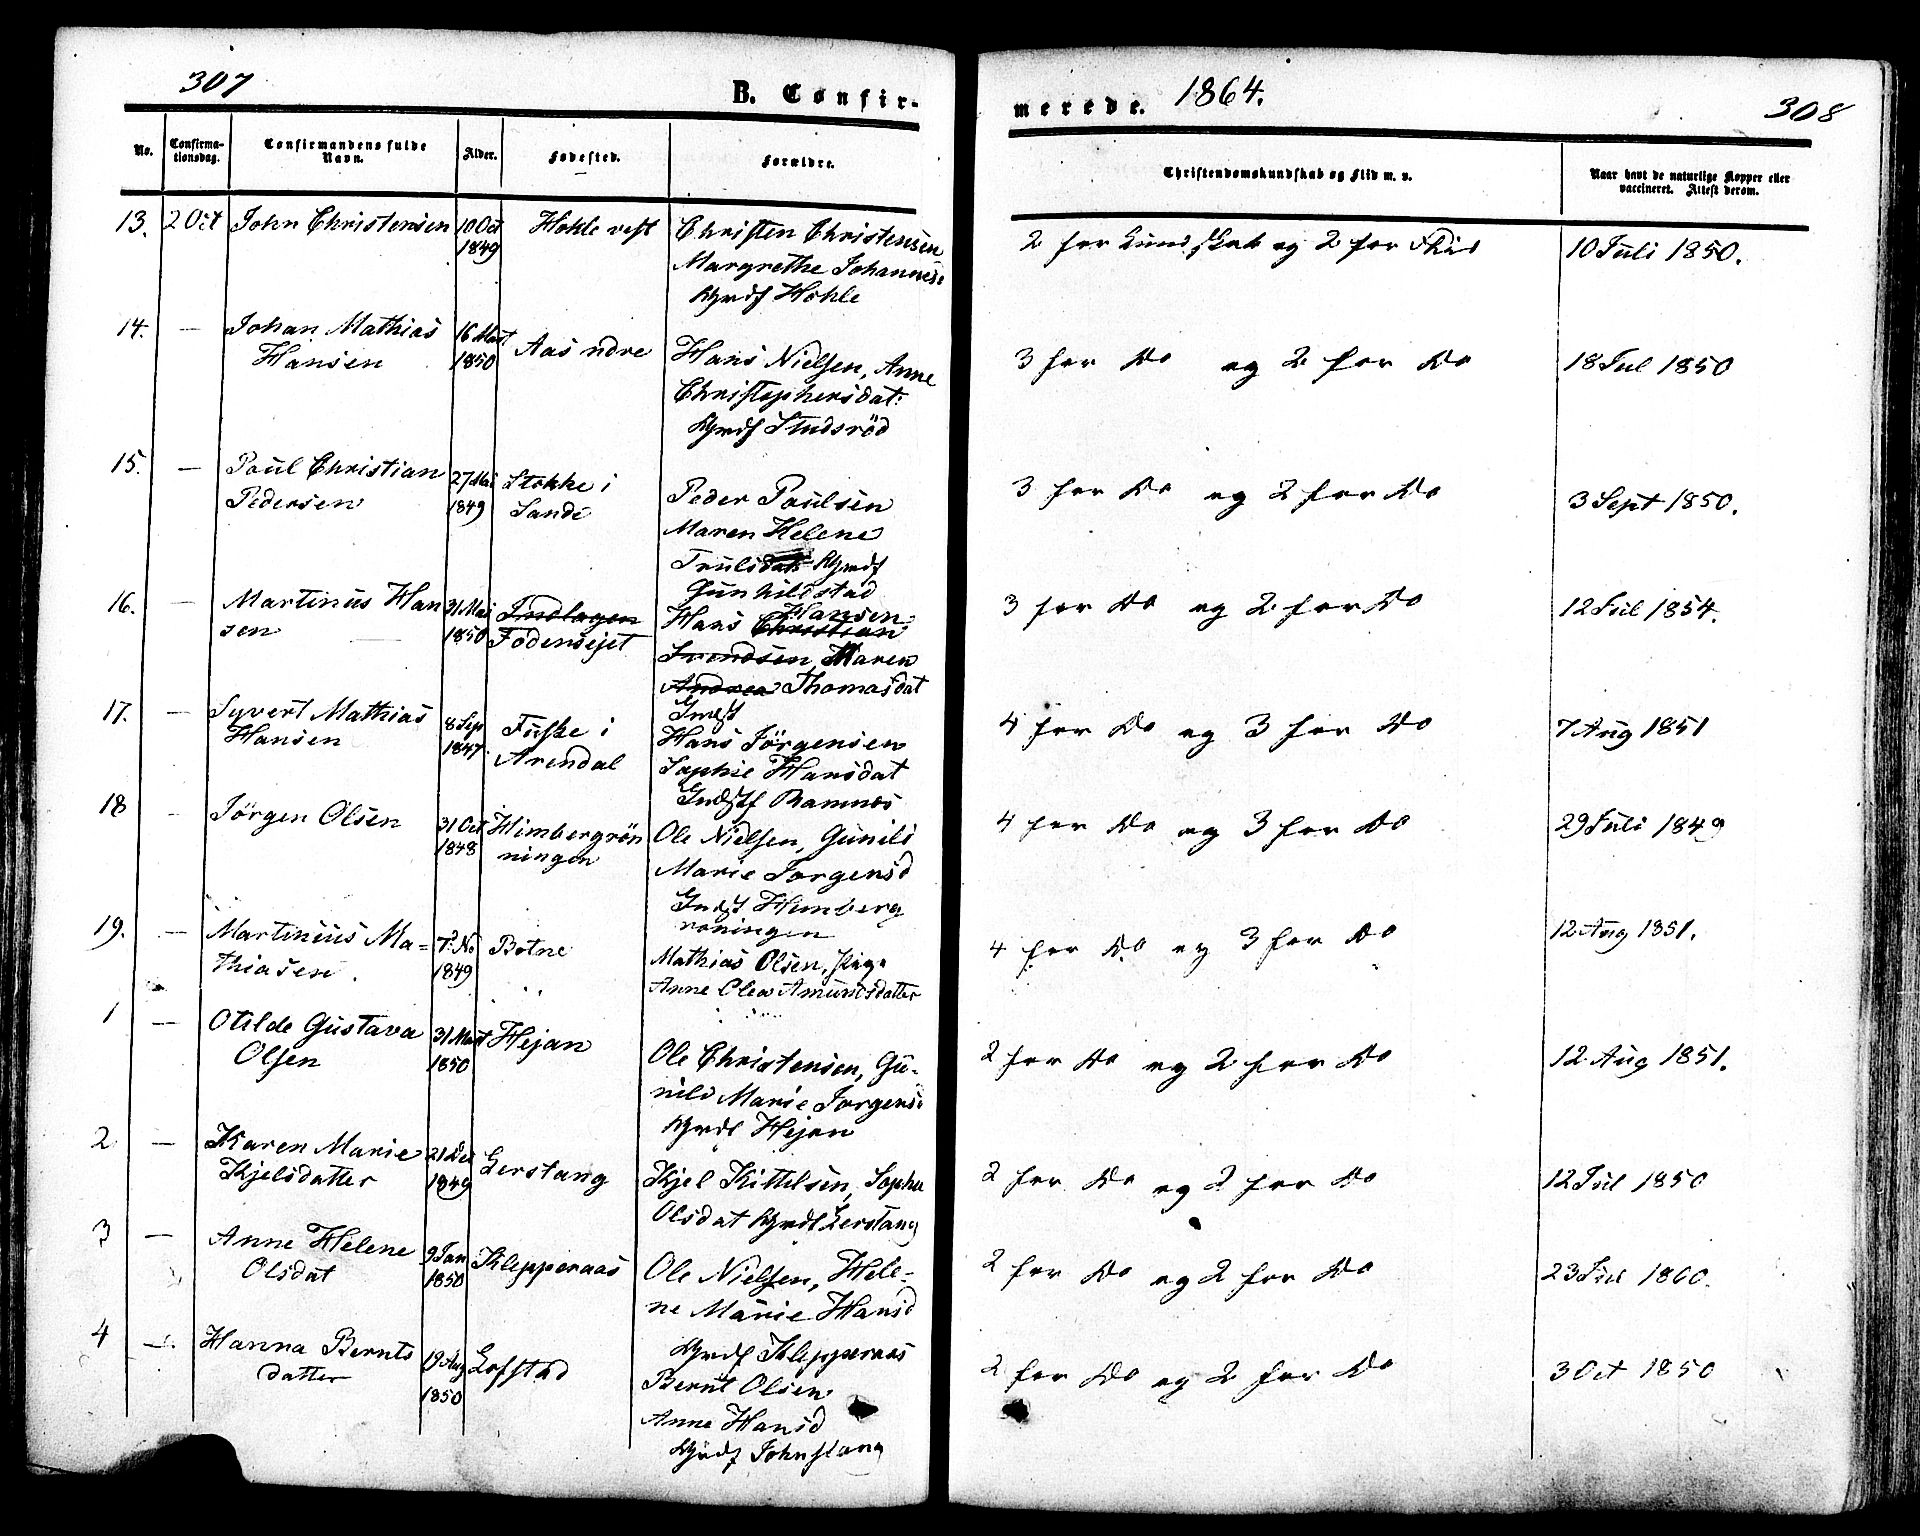 307
B. Confir-
merede. 1864.
308
No.
Confirma-
tionsdag.
Confirmandens fulde
Navn.
Alder.
Fødested.
Forældre.
Christendomskundskab og Flid m. v.
Naar havt de naturlige Kopper eller
vaccineret. Attest derom.
13. 2 Oct John Christensen 10 Oct 1849 Hohle vest
Christen Christensen
Margrethe Johannesd
Gmdf Hohle
2 for Kundskab og 2 for Flid 10 Juli 1850.
14. — Johan Mathias
Hansen
16 Mart
1850
Aas ndre
Hans Nielsen, Anne
Christophersdat:
Gmdf Studsröd
3 for Do og 2 for Do 18 Jul 1850
15. — Poul Christian
Pedersen
27 Mai
1849
Stokke i
Sande
Peder Poulsen
Maren Helene
Trulsdat Gmdf
Gunhildstad
3 for Do og 2 for Do 3 Sept 1850.
16. — Martinus Han
sen
31 Mai
1850
Indlagen
Fodensejet
Hansen
Hans Christian
Svendsen, Maren
Andrea Thomasdat
Indst
3 for Do og 2 for Do 12 Jul 1854.
17. — Syvert Mathias
Hansen
8 Sep
1847.
Fuske i
Arendal
Hans Jörgensen
Sophie Hansdat
Indstf Ramnes
4 for Do og 3 for Do 7 Aug 1851
18 — Jörgen Olsen
31 Oct
1848
Himbergrön
ningen
Ole Nielsen, Gunild
Marie Jorgensd
Indst Himberg
roningen
4 for Do og 3 for Do 29 Juli 1849
19. — Martinius Ma-
thiasen.
7 No
1849
Botne
Mathias Olsen, Pige
Anne Olea Amundsdatter
4 for Do og 3 for Do 12 Aug 1851.
1 — Otilde Gustava
Olsen
31 Mart
1850
Hejan
Ole Christensen, Gu-
nild Marie Jorgensd
Gmdf Hejan
2 for Do og 2 for Do 12 Aug 1851.
2 — Karen Marie
Kjelsdatter
21 Dec
1849
Lerstang
Kjel Kittelsen, Sophie
Olsdat Gmdf Lerstang
2 for Do og 2 for Do 12 Jul 1850
3 — Anne Helene
Olsdat
9 Jan
1850
Kleppernaas
Ole Nielsen, Hele-
ne Marie Hansd
Gmdf Kleppernaas
2 for Do og 2 for Do 23 Jul 1860.
4 — Hanna Bernts
datter
19 Aug
1850
Lofstad
Bernt Olsen
Anne Hansd
Gmdf Johnslang
2 for Do og 2 for Do 3 Oct 1850